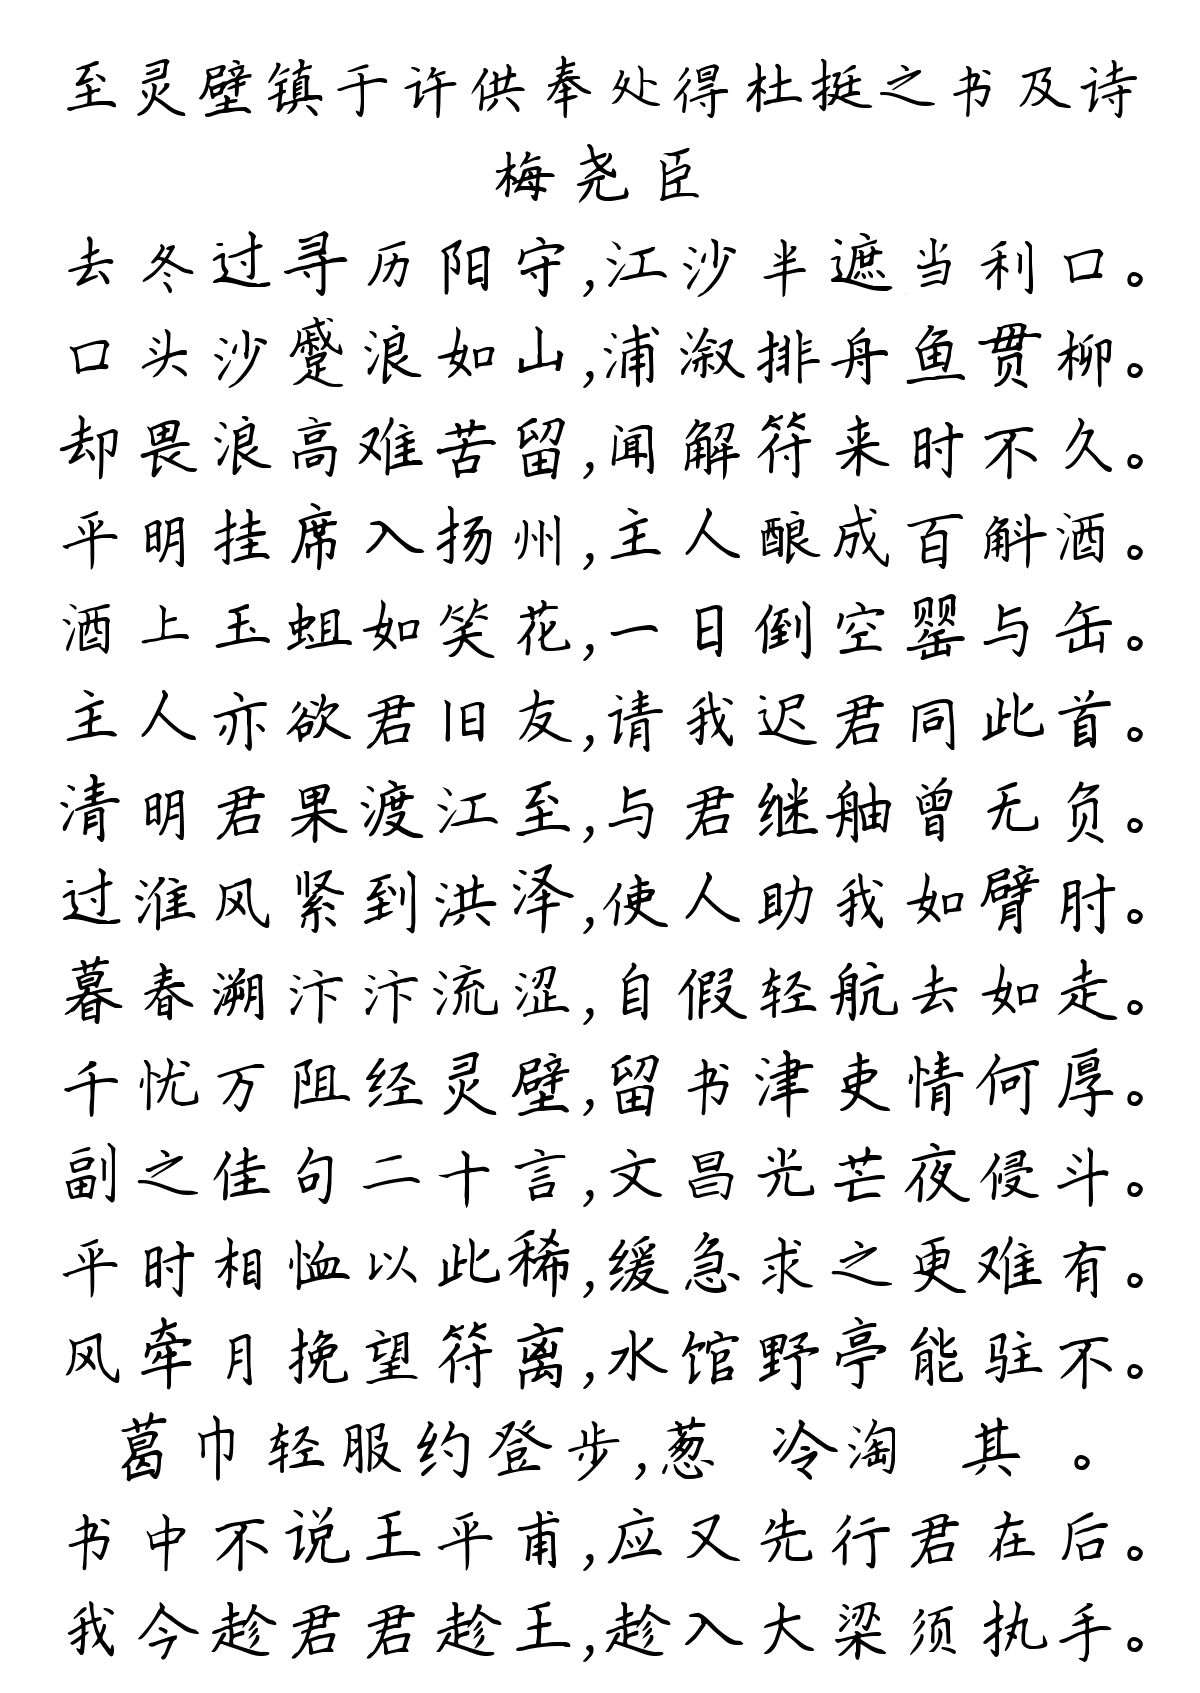 至灵壁镇于许供奉处得杜挺之书及诗
梅尧臣
去冬过寻历阳守,江沙半遮当利口。
口头沙蹙浪如山,浦溆排舟鱼贯柳。
却畏浪高难苦留,闻解符来时不久。
平明挂席入扬州,主人酿成百斛酒。
酒上玉蛆如笑花,一日倒空罂与缶。
主人亦欲君旧友,请我迟君同此首。
清明君果渡江至,与君继舳曾无负。
过淮风紧到洪泽,使人助我如臂肘。
暮春溯汴汴流涩,自假轻航去如走。
千忧万阻经灵壁,留书津吏情何厚。
副之佳句二十言,文昌光芒夜侵斗。
平时相恤以此稀,缓急求之更难有。
风牵月挽望符离,水馆野亭能驻不。
葛巾轻服约登步,葱 冷淘 其 。
书中不说王平甫,应又先行君在后。
我今趁君君趁王,趁入大梁须执手。